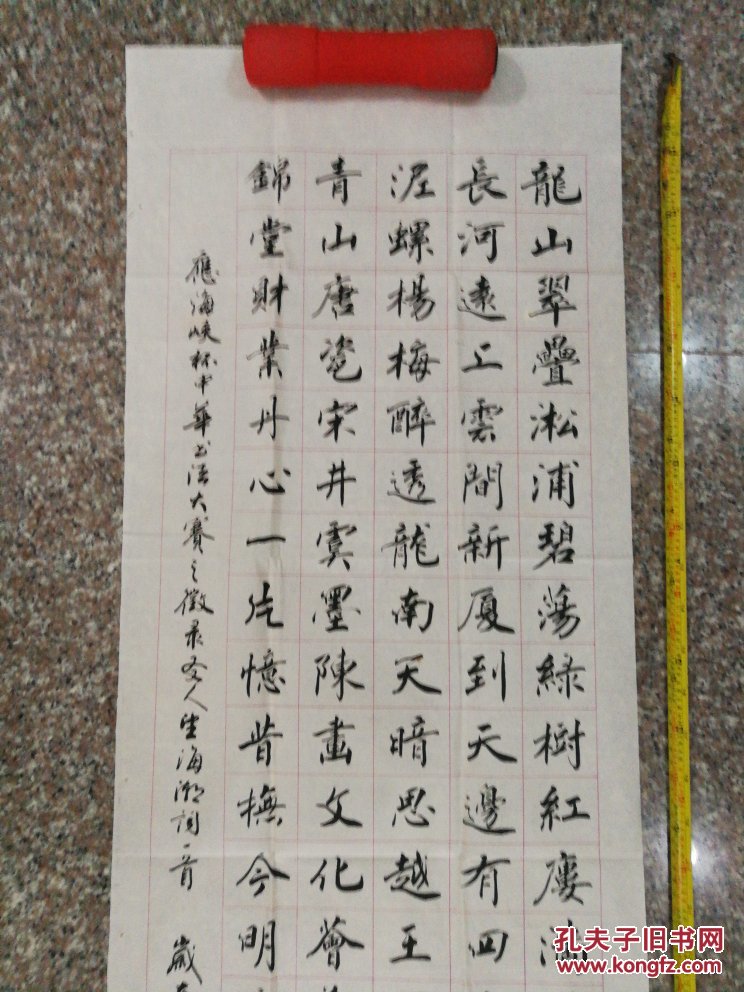 龍山翠疊淞浦碧蕩綠樹紅廔湖
長河遠上雲間新廈到天邊有四
泥螺楊梅醉透龍南天暗思越王
青山唐瓷宋井虞墨陳畫文化薈
錦堂財業丹心一片憶昔撫今明
應海峽杯中華書法大賽之徵录冬人生海潮詞一首 歲
孔夫子旧书网
www.kongfz.com